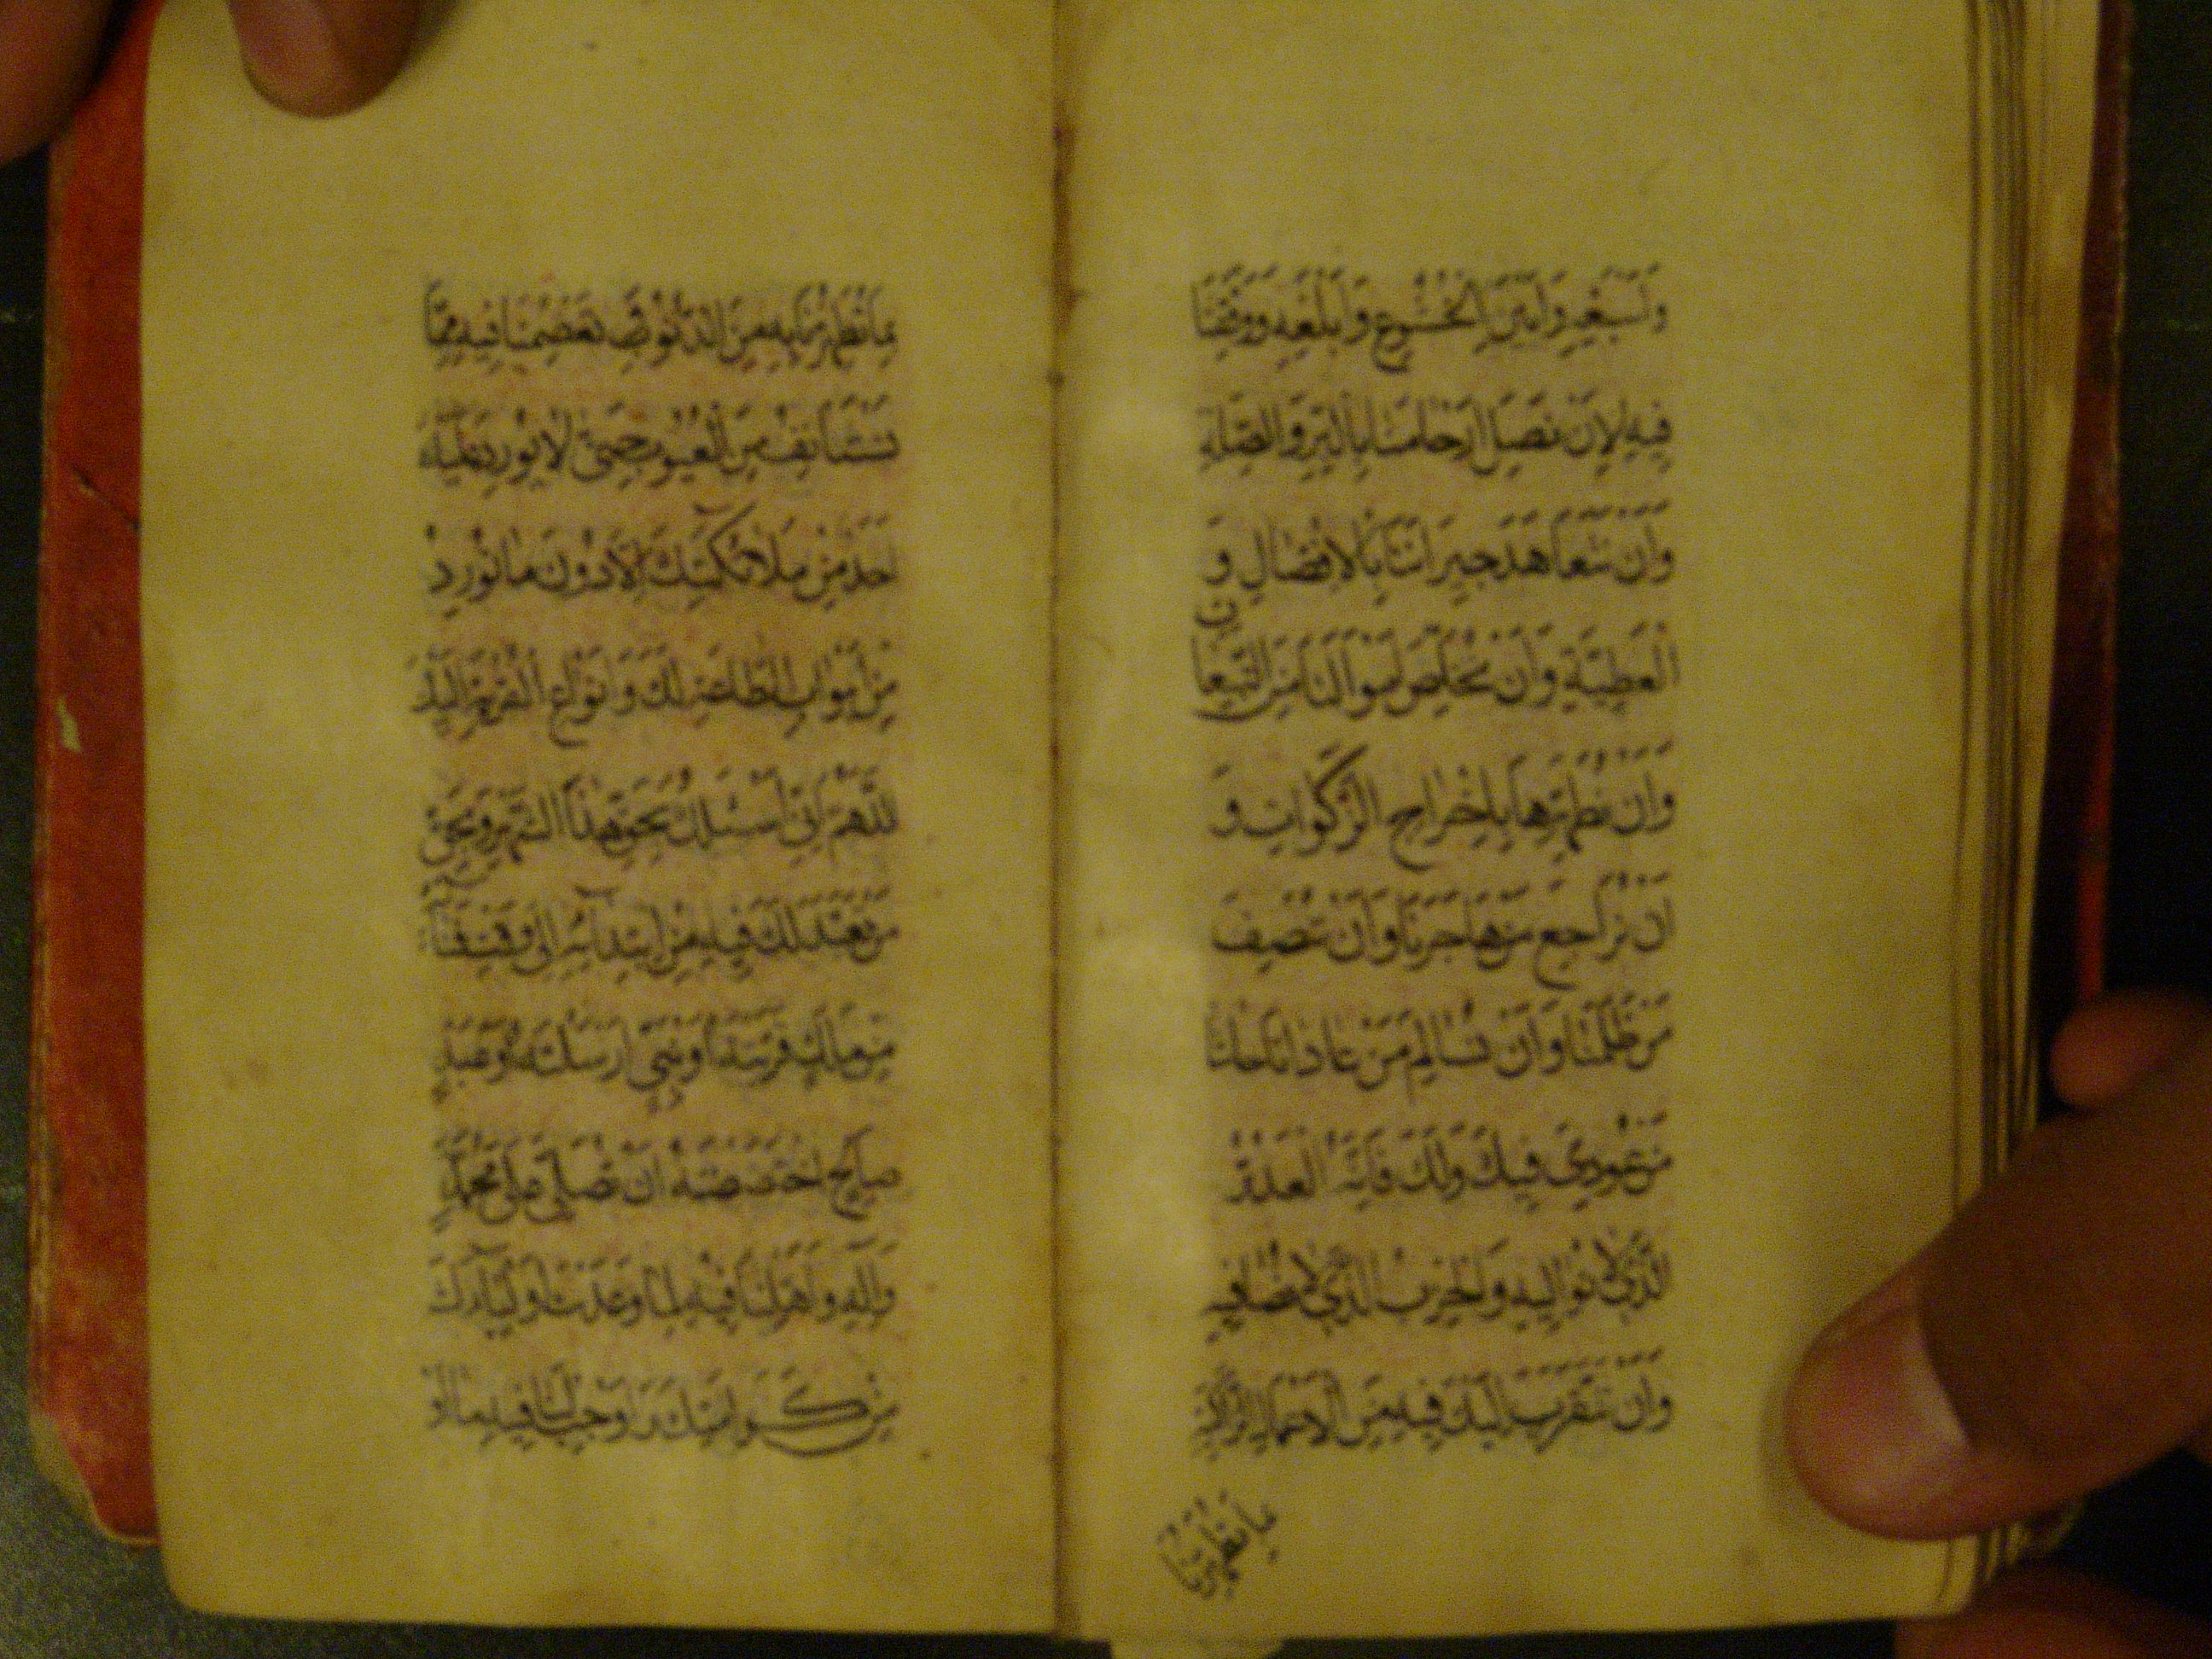 وَاَسْبَغِهِ وَاَبْيَنِ الْخُشُوعِ وَاَبْلَغِهِ وَوَفِّقْنَا
فِيهِ لِاَنْ نَصِلَ اَرْحَامَنَا بِالْبِرِّ وَالصِّلَةِ
وَاَنْ نَتَعَاهَدَ جِيرَانَنَا بِالْاِفْضَالِ وَ
الْعَطِيَّةِ وَاَنْ نُخَلِّصَ اَمْوَالَنَا مِنَ التَّبِعَاتِ
وَاَنْ نُطَهِّرَهَا بِاِخْرَاجِ الزَّكَوَاتِ وَ
اَنْ نُرَاجِعَ مَنْ هَاجَرَنَا وَاَنْ نُنْصِفَ
مَنْ ظَلَمَنَا وَاَنْ نُسَالِمَ مَنْ عَادَانَا حَاشَا
مَنْ عُودِىَ فِيكَ وَلَكَ فَاِنَّهُ الْعَدُوُّ
الَّذِى لَا نُوَالِيهِ وَالْحِزْبُ الَّذِى لَا نُصَافِيهِ
وَاَنْ نَتَقَرَّبَ اِلَيْكَ فِيهِ مِنَ الْاَعْمَالِ الزَّاكِيَةِ
بِمَا تُطَهِّرُنَا
بِمَا تُطَهِّرُنَا بِهِ مِنَ الذُّنُوبِ وَتَعْصِمُنَا فِيهِ مِمَّا
نَسْتَأْنِفُ مِنَ الْعُيُوبِ حَتّٰى لَا يُورِدَ عَلَيْكَ
اَحَدٌ مِنْ مَلَائِكَتِكَ اِلَّا دُونَ مَا نُورِدُ
مِنْ اَبْوَابِ الطَّاعَةِ لَكَ وَاَنْوَاعِ الْقُرْبَةِ اِلَيْكَ
اللّٰهُمَّ اِنِّى اَسْئَلُكَ بِحَقِّ هٰذَا الشَّهْرِ وَبِحَقِّ
مَنْ تَعَبَّدَ لَكَ فِيهِ مِنِ ابْتِدَآئِهِ اِلٰى وَقْتِ فَنَآئِهِ
مِنْ مَلَكٍ قَرَّبْتَهُ اَوْ نَبِىٍّ اَرْسَلْتَهُ اَوْ عَبْدٍ
صَالِحٍ اخْتَصَصْتَهُ اَنْ تُصَلِّىَ عَلٰى مُحَمَّدٍ
وَاٰلِهِ وَاَهِّلْنَا فِيهِ لِمَا وَعَدْتَ اَوْلِيَآءَكَ
مِنْ كَرَامَتِكَ وَاَوْجِبْ لَنَا فِيهِ مَا اَوْ